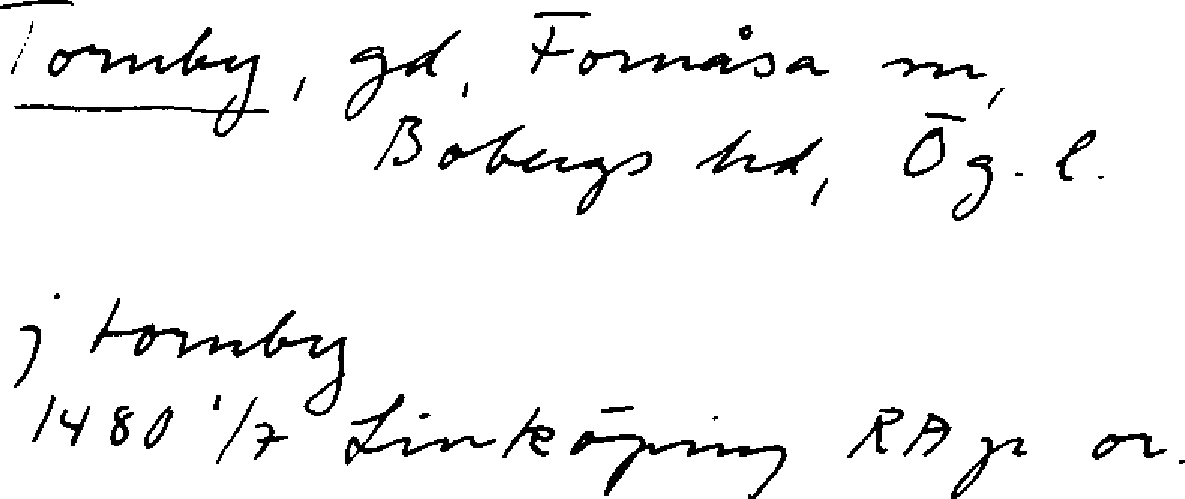 Tornby, gd, Fornåsa sn,
Bobergs hd, Ög. l.
j tornby
1480 1/7 Linköping RA p or.